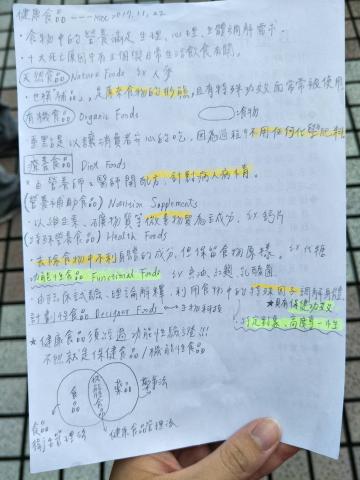 健康食品 --- Mec 2017.11.22
・食物中的營養滿足生理、心理、生體調解需求
・十大死亡原因中有五個與日常生活飲食有關。
天然食品 Nature Foods ex 人參
・也稱補品,是原來食物的形態,且有特殊功效而常常被使用
有機食品 Organic Foods
重點是以讓消費者安心的吃,因為過程中不用任何化學肥料
療養食品 Diet Foods
・由營養師、醫師開配方,針對病人病情。
(營養補助食品) Nutrition Supplements
・以維生素、礦物質等微量物質為主成分。ex 鈣片
(特殊營養食品) Health Foods
・去掉食物中不利身體的成分,但保留食物原樣。ex 代糖
功能性食品 Functional Foods ex 魚油、紅麴、乳酸菌
・由臨床試驗、理論解釋,利用食物中的特殊因子調解身體
計劃性食品 Designer Foods 生物科技
★具有保健功效
★健康食品須治過功能性驗證!!!
不然就是保健食品/機能性食品
食品
機能食品
藥品
藥事法
食品衛生管理法
健康食品管理法